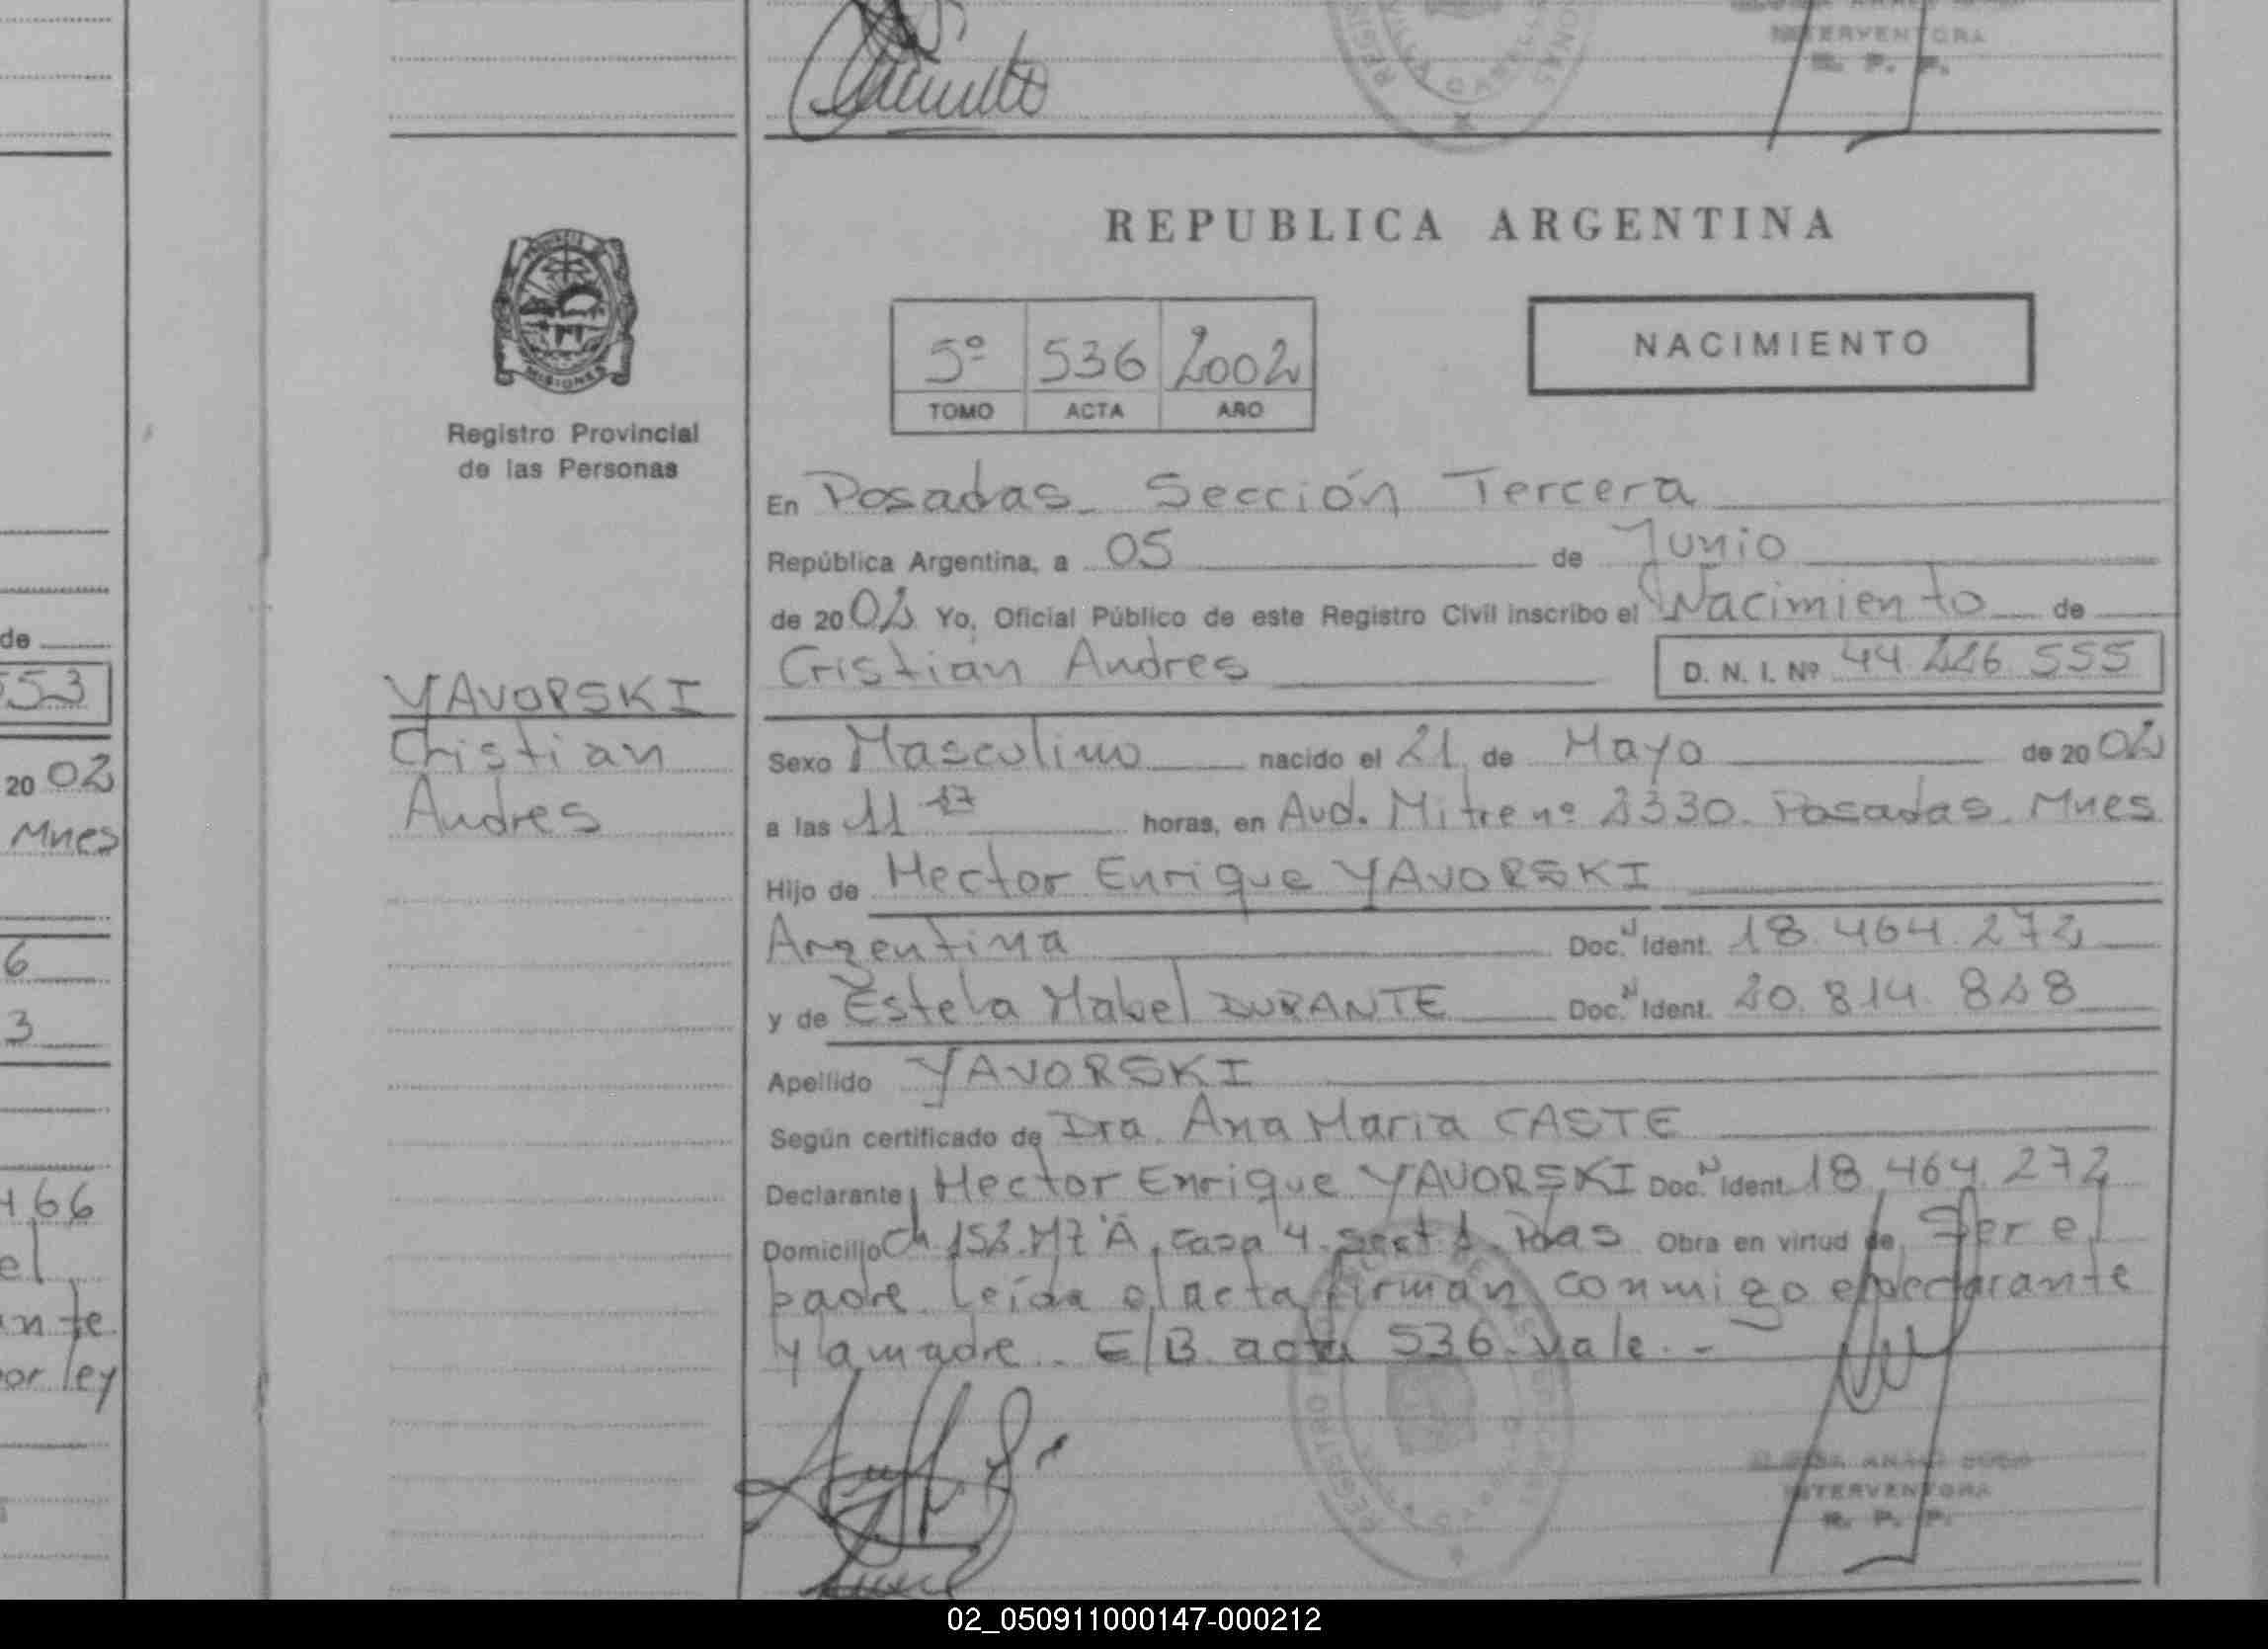 INTERVENTORA
R. P. P.
REPUBLICA ARGENTINA
MISIONES
Registro Provincial
de las Personas
5º 536 2002
TOMO ACTA AÑO
NACIMIENTO
En Posadas - Sección Tercera
República Argentina, a 05 de Junio
de 2002 Yo, Oficial Público de este Registro Civil inscribo el Nacimiento de
de
Cristian Andres
D. N. I. Nº 44.226.555
553
YAVORSKI
Cristian
Andres
Sexo Masculino nacido el 21 de Mayo de 2002
20 02
a las 11 17 horas, en Avd. Mitre nº 2330. Posadas. Mnes
Mnes
Hijo de Hector Enrique YAVORSKI
Argentina Doc. N Ident. 18.464.272
6
y de Estela Mabel DURANTE Doc. N Ident. 20.814.828
3
Apellido YAVORSKI
Según certificado de Dra. Ana Maria CASTE
Declarante Hector Enrique YAVORSKI Doc. N Ident. 18.464.272
466
Domicilio Ch 152. Mz "A", casa 4. Pdas Obra en virtud de Ser el
el
padre. Leída el acta firman conmigo el declarante
nte
y la madre. E/B. acta 536. Vale.-
or ley
INTERVENTORA
R. P. P.
02_050911000147-000212